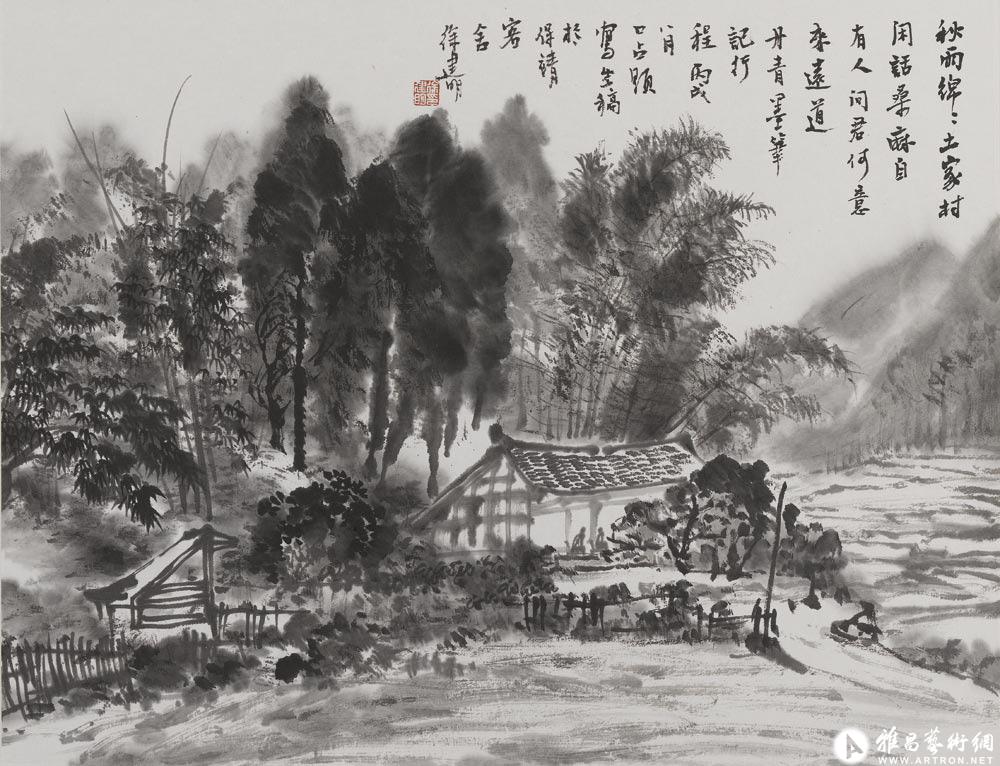 秋雨绵〻土家村
闲話桑麻自
有人问君何意
来遠道
丹青墨筆
記行
程丙戌
八月
口占顕
寫生稿
於
保靖
客
舍
徐建明
雅昌藝術網
WWW.ARTRON.NET